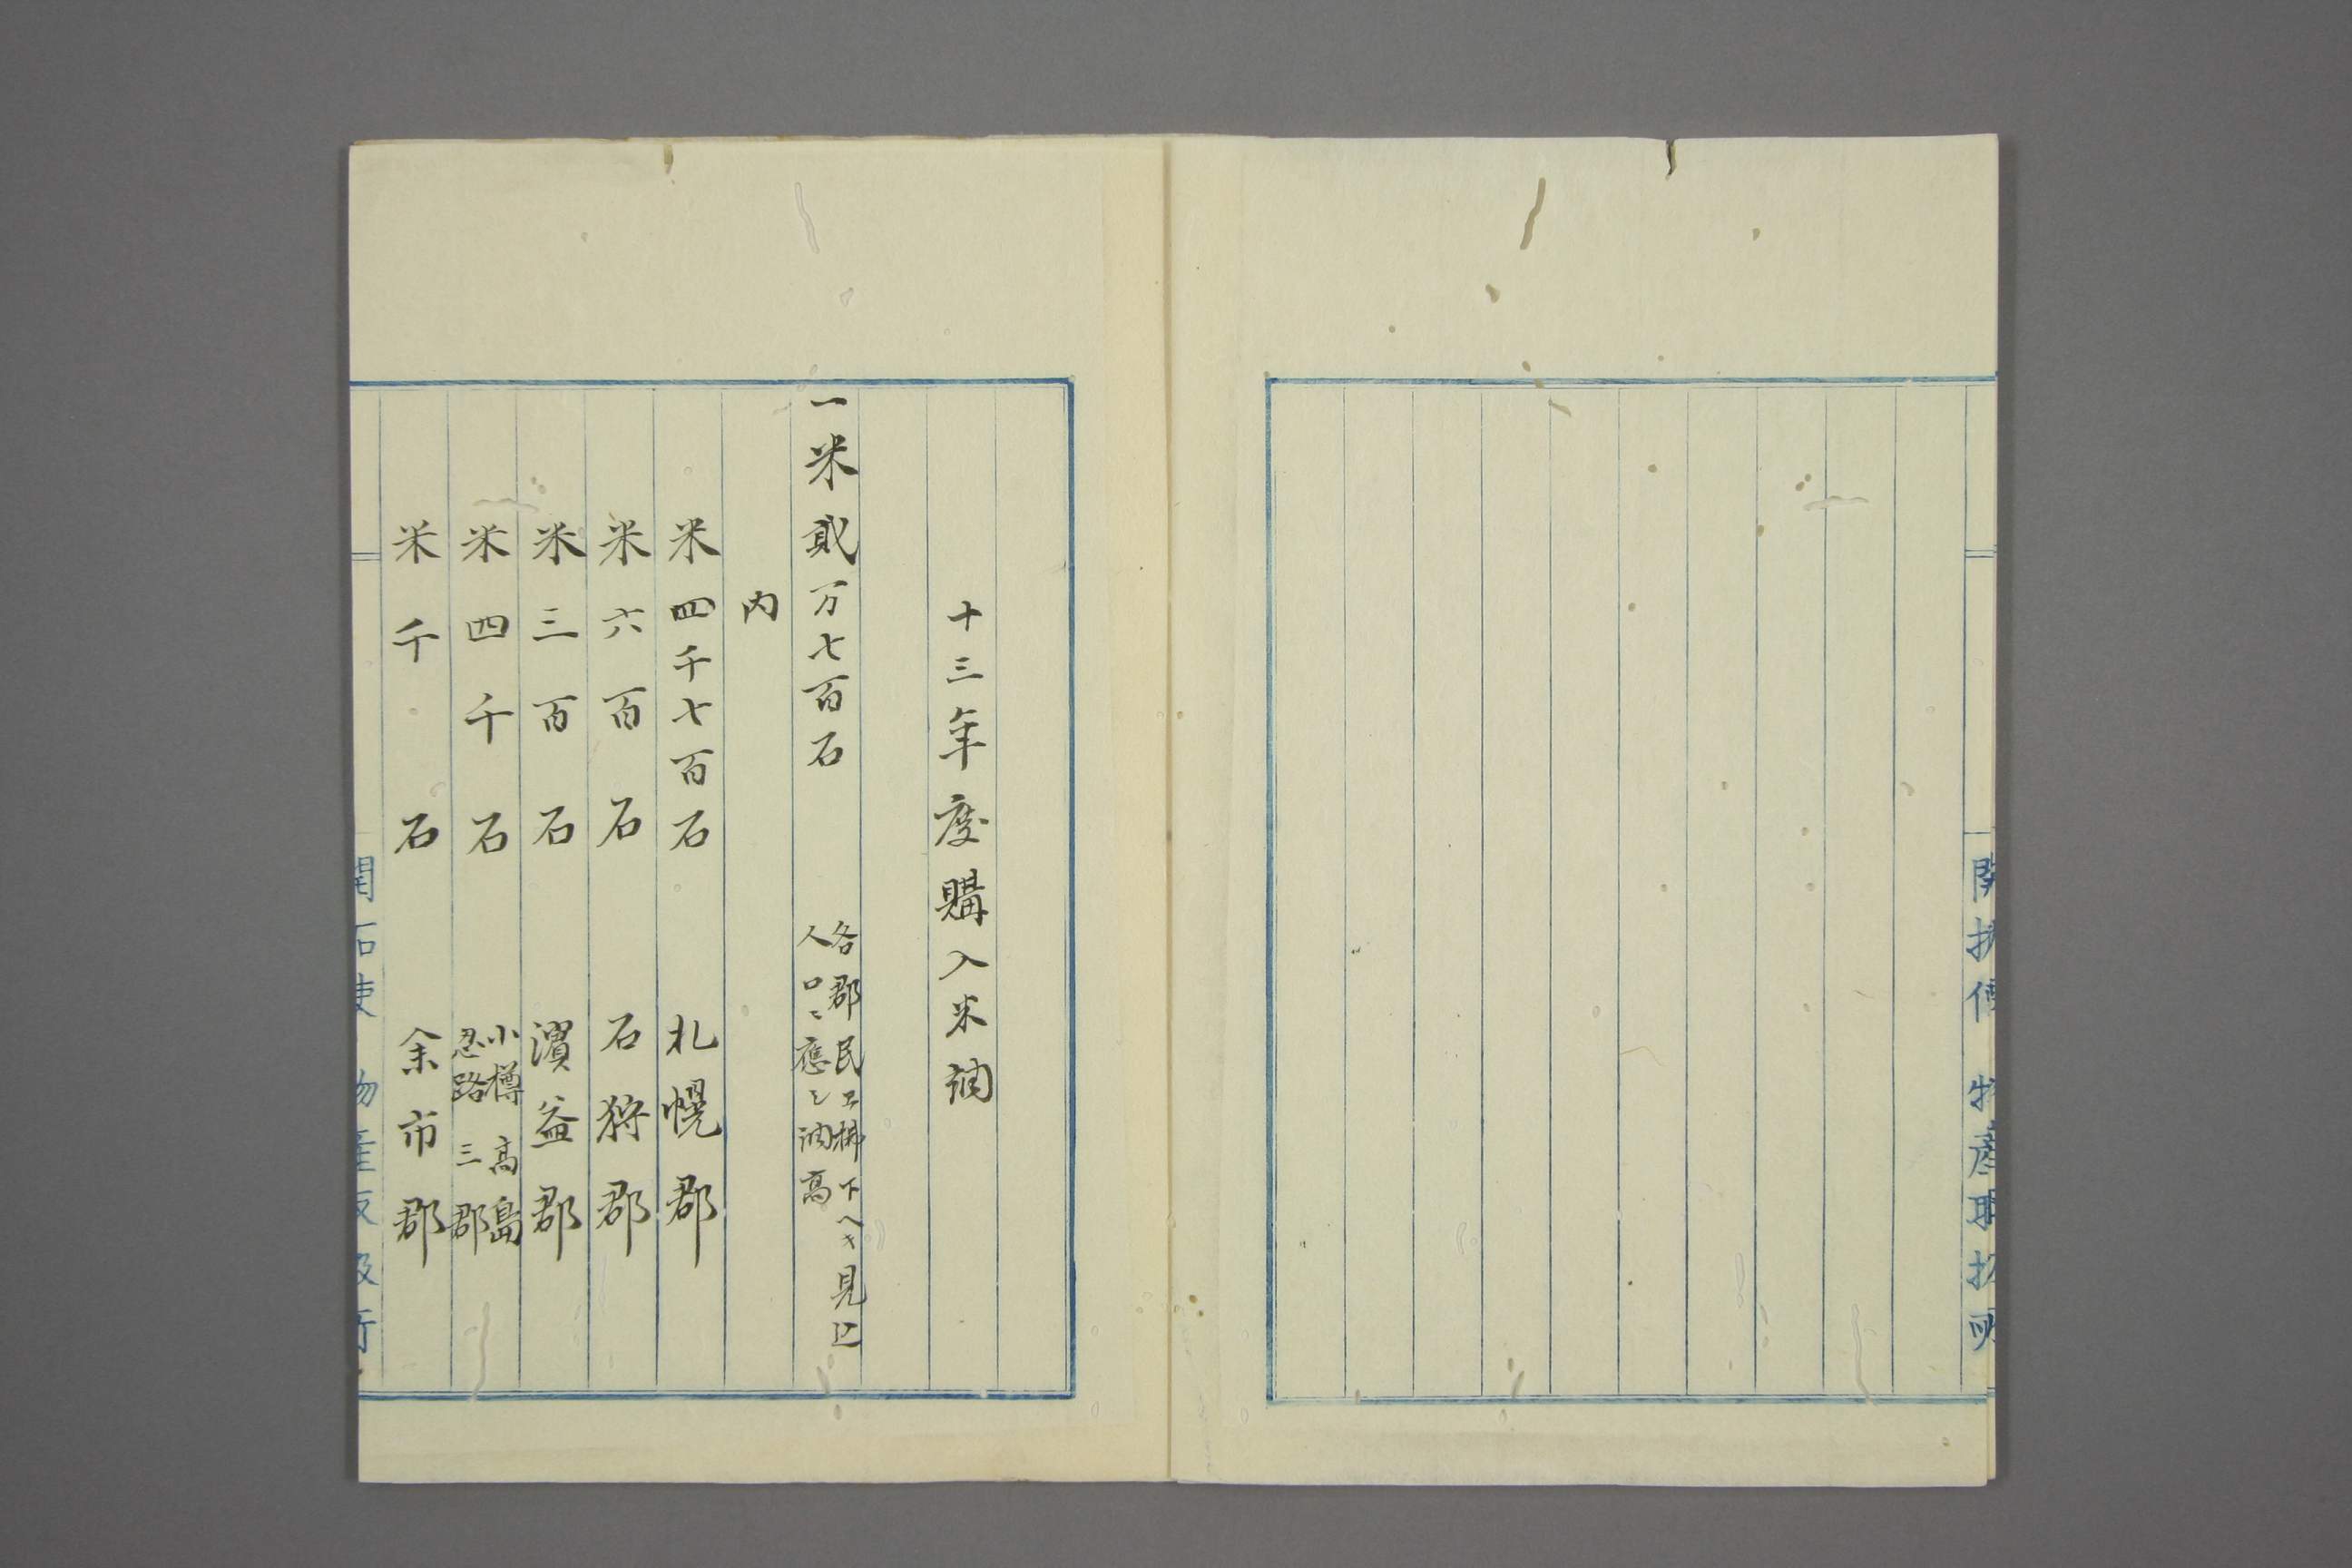 開拓使 物産取扱所
十三年度購入米調
一米貳万七百石
各郡民ヱ拂下ヘキ見込
人口ニ應シ調高
内
米四千七百石 札幌郡
米六百石 石狩郡
米三百石 濱益郡
米四千石 小樽 高島
忍路 三郡
米千石 余市郡
開拓使 物産取扱所